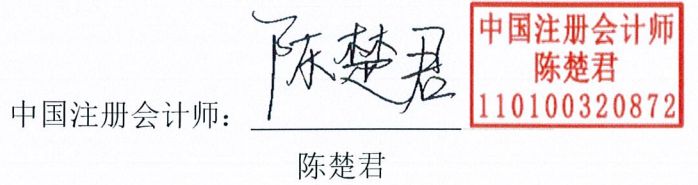 中国注册会计师：陈楚君
陈楚君
中国注册会计师
陈楚君
110100320872